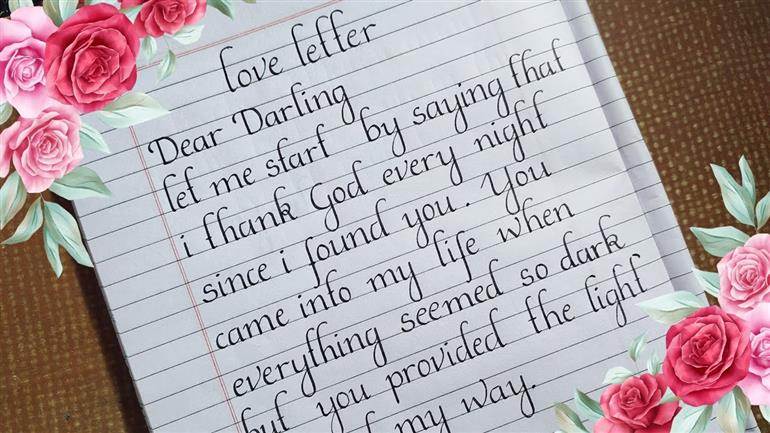 love letter
Dear Darling
let me start by saying that
i thank God every night
since i found you. You
came into my life when
everything seemed so dark
but you provided the light
of my way.